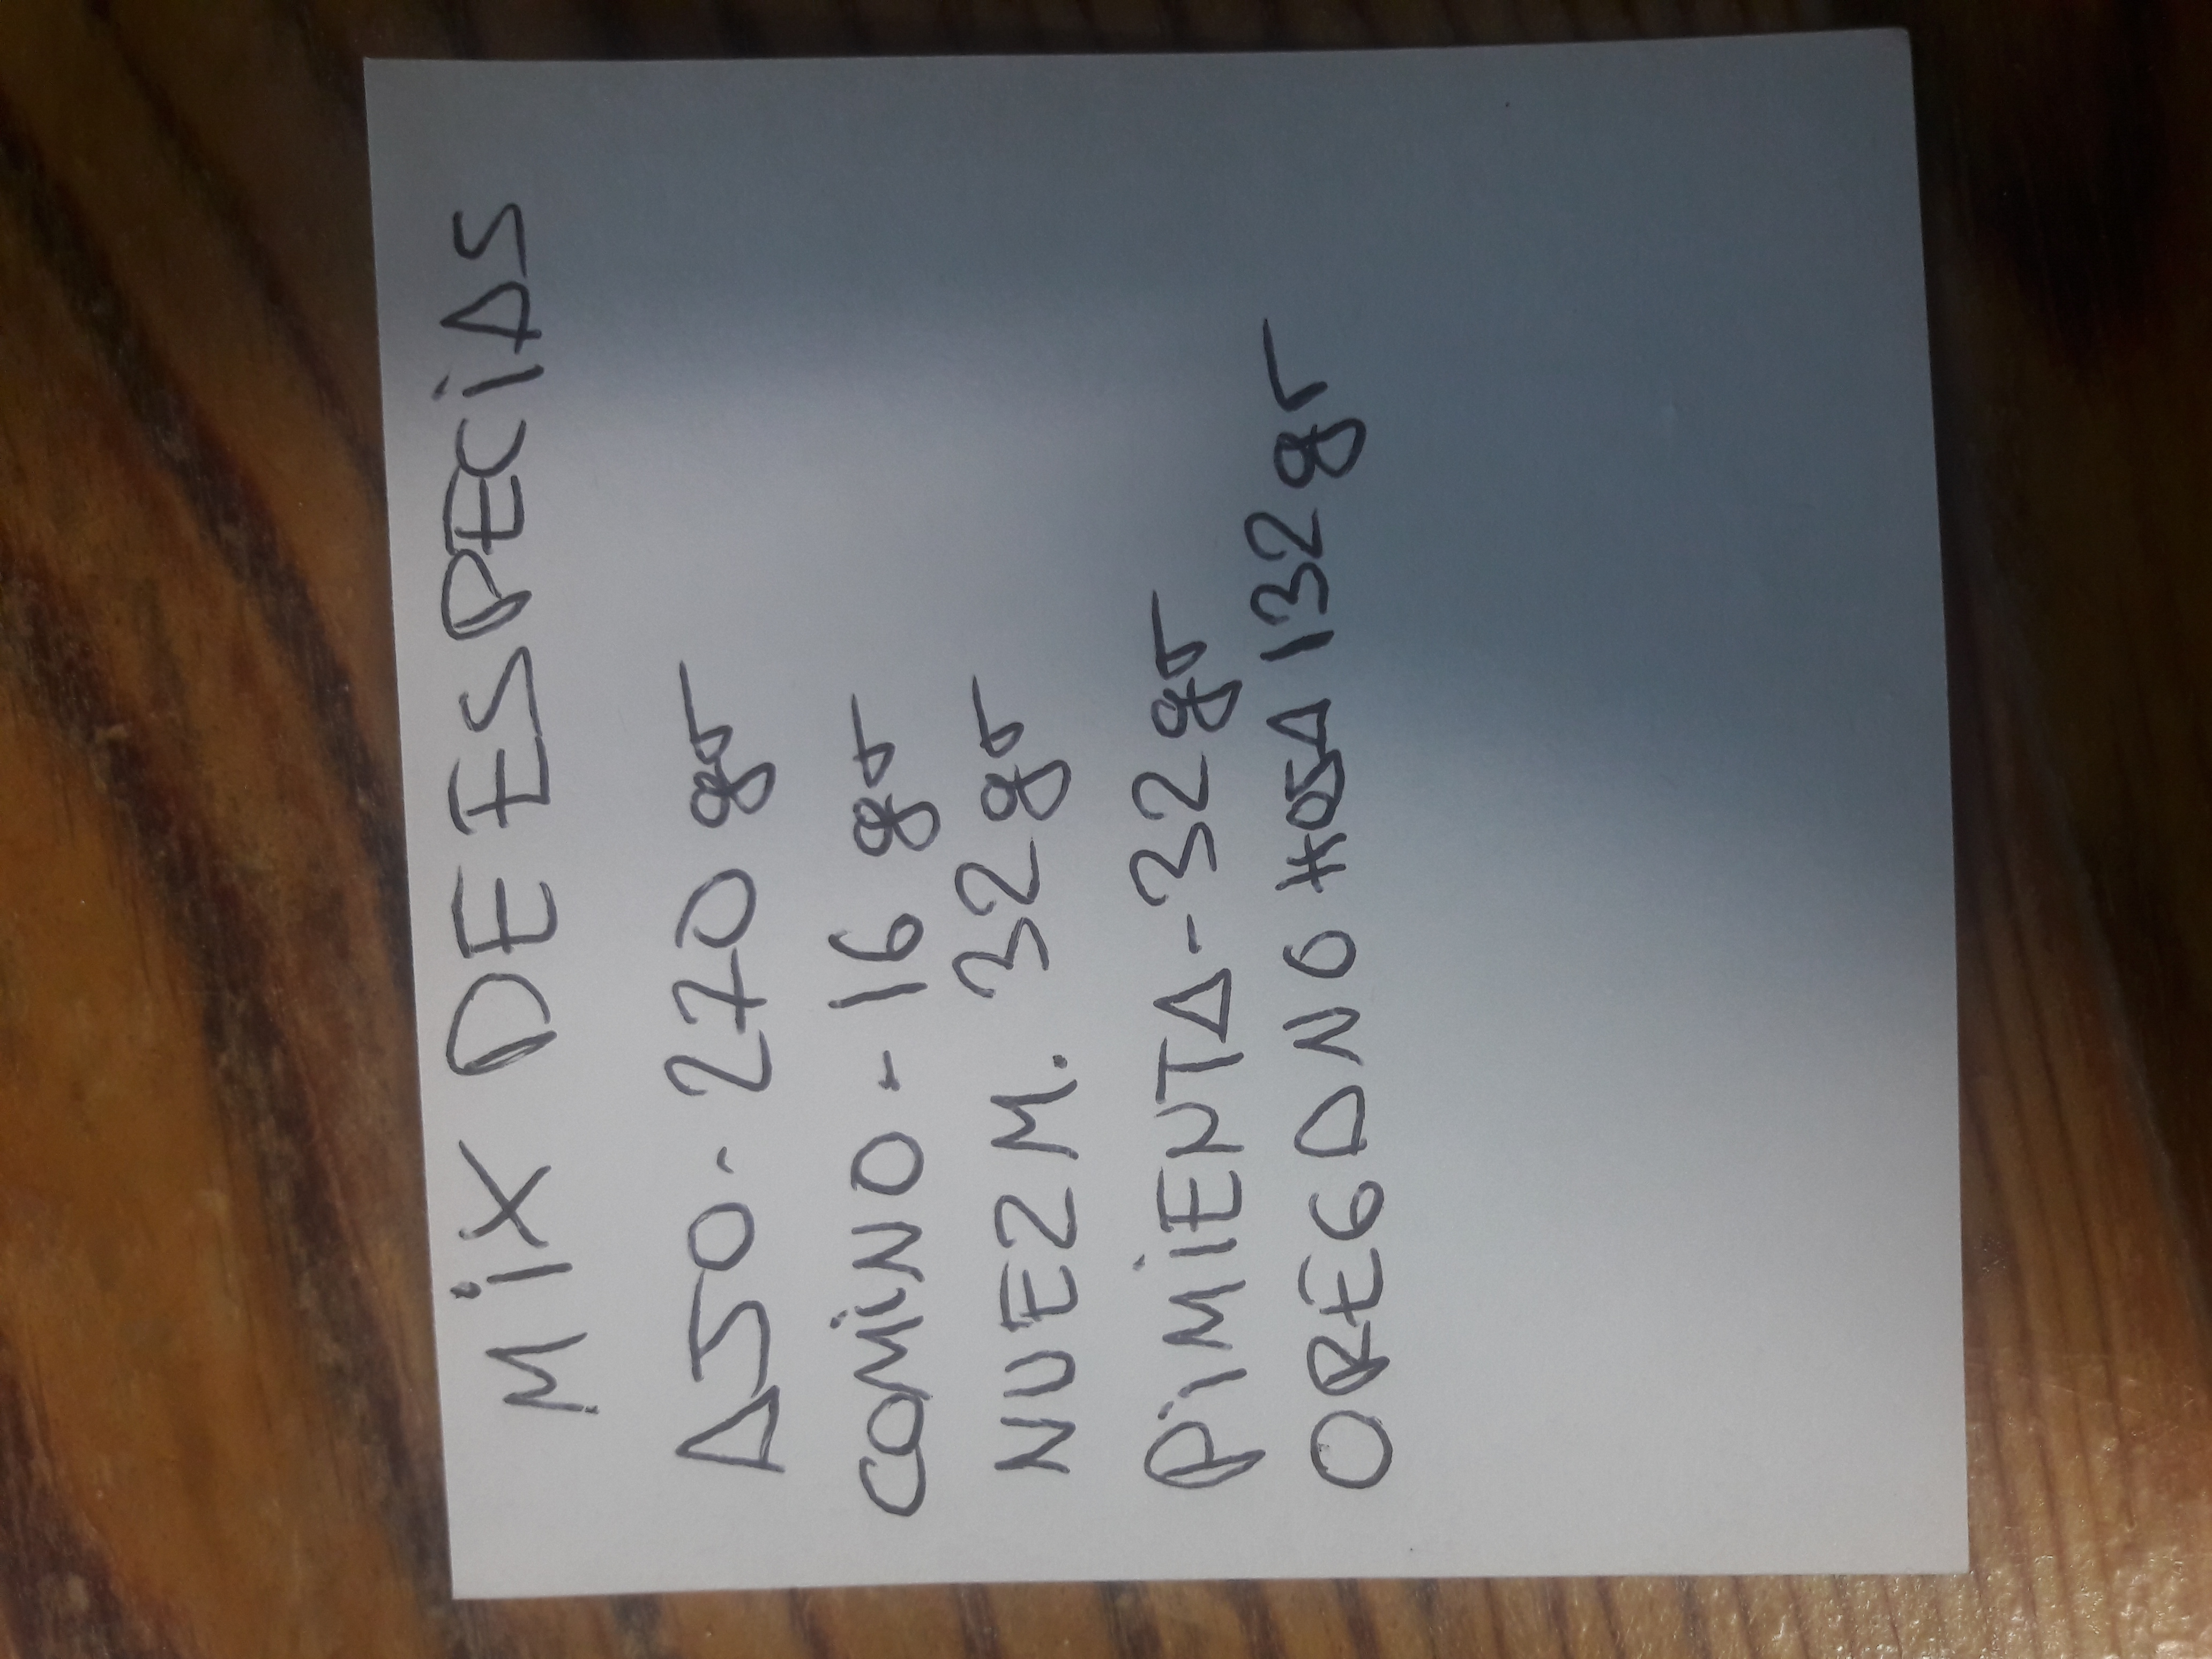 MiX DE ESPECiAS
AJO - 270 gr
COMiNO - 16 gr
NUEZ M. 32 gr
PiMiENTA - 32 gr
OREGANO HOJA 132 gr